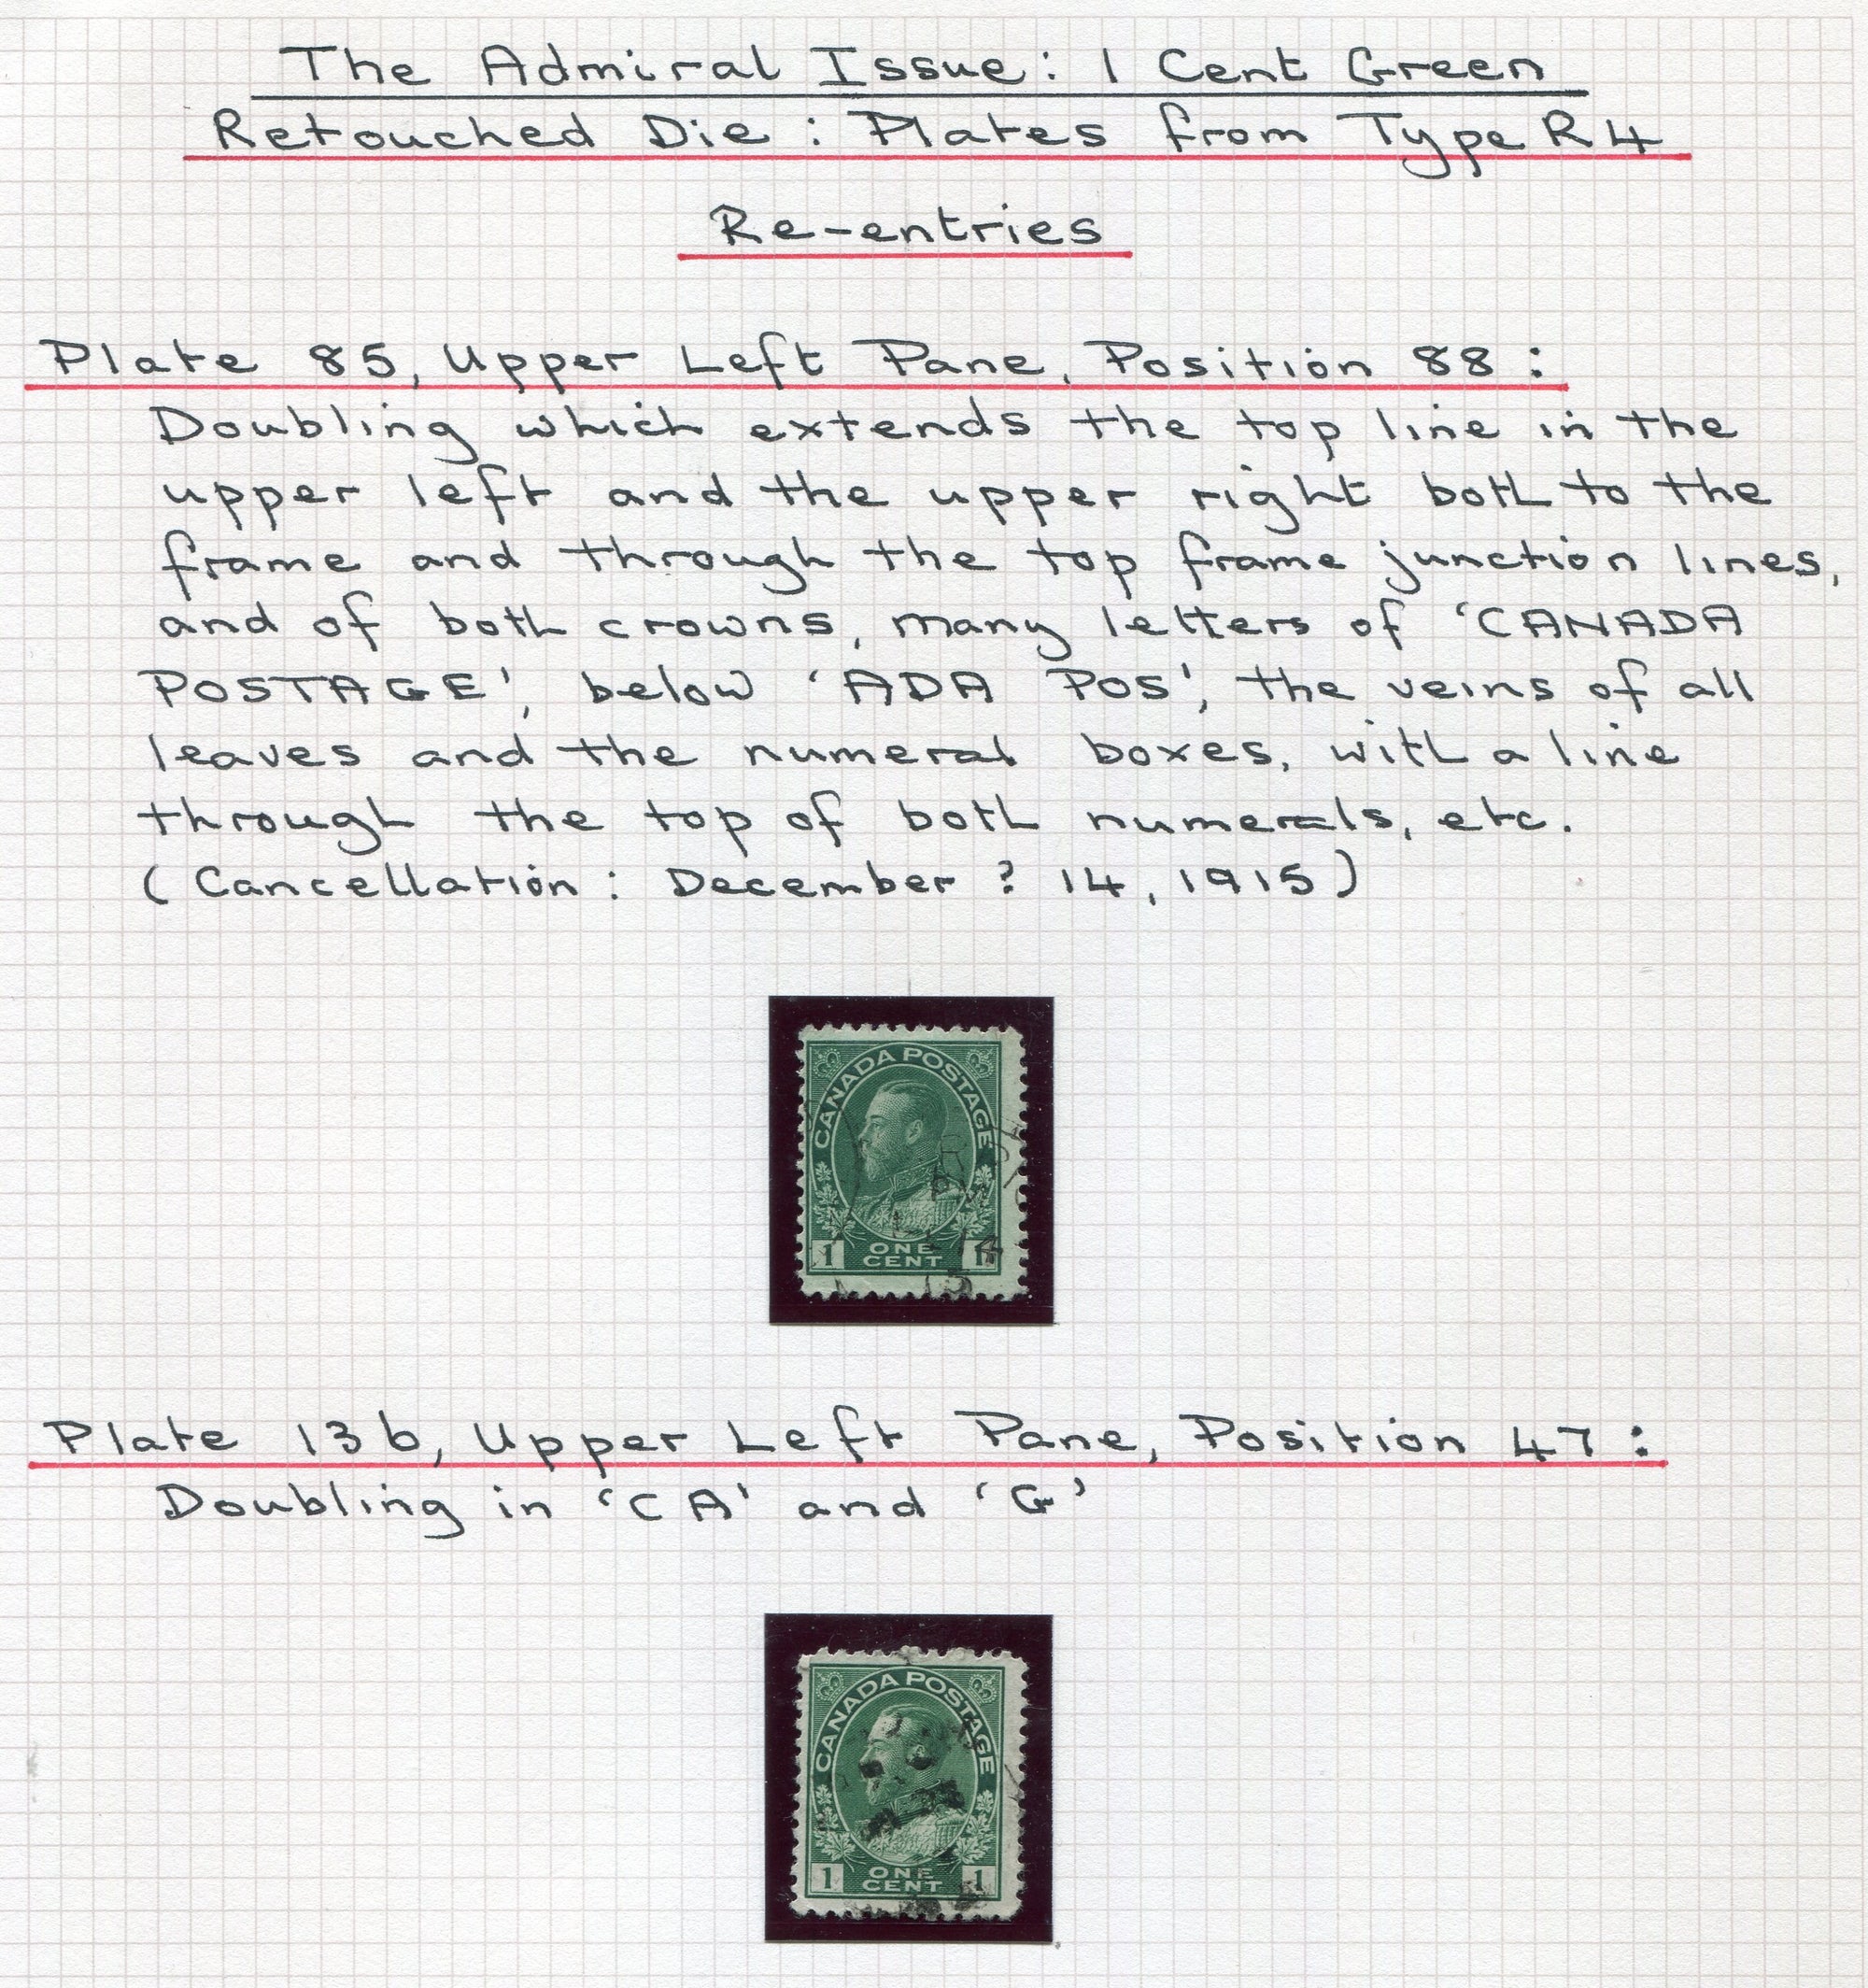 The Admiral Issue: 1 Cent Green
Retouched Die: Plates from Type R4
Re-entries
Plate 85, Upper Left Pane, Position 88:
Doubling which extends the top line in the
upper left and the upper right both to the
frame and through the top frame junction lines,
and of both crowns, many letters of 'CANADA
POSTAGE', below 'ADA POS', the veins of all
leaves and the numeral boxes, with a line
through the top of both numerals, etc.
(Cancellation: December ? 14, 1915)
CANADA POSTAGE
1 ONE 1
CENT
14
15
Plate 136, Upper Left Pane, Position 47:
Doubling in 'CA' and 'G'
CANADA POSTAGE
1 ONE 1
CENT